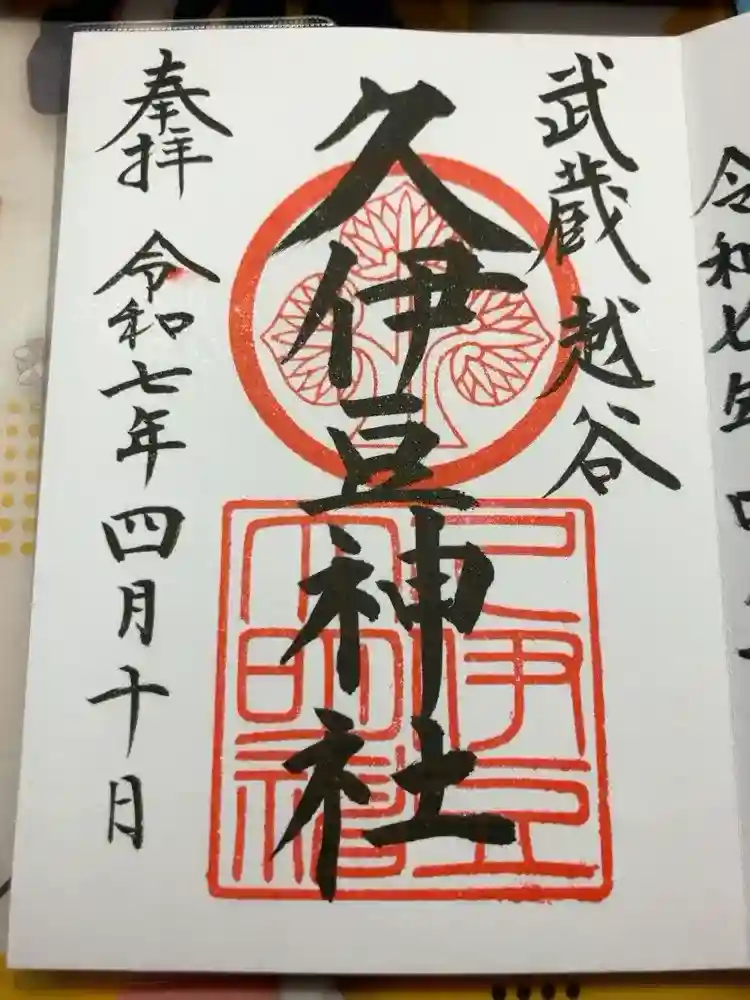 令和七年四
武蔵越谷
久伊豆神社
奉拝 令和七年四月十日
久伊豆
大明神